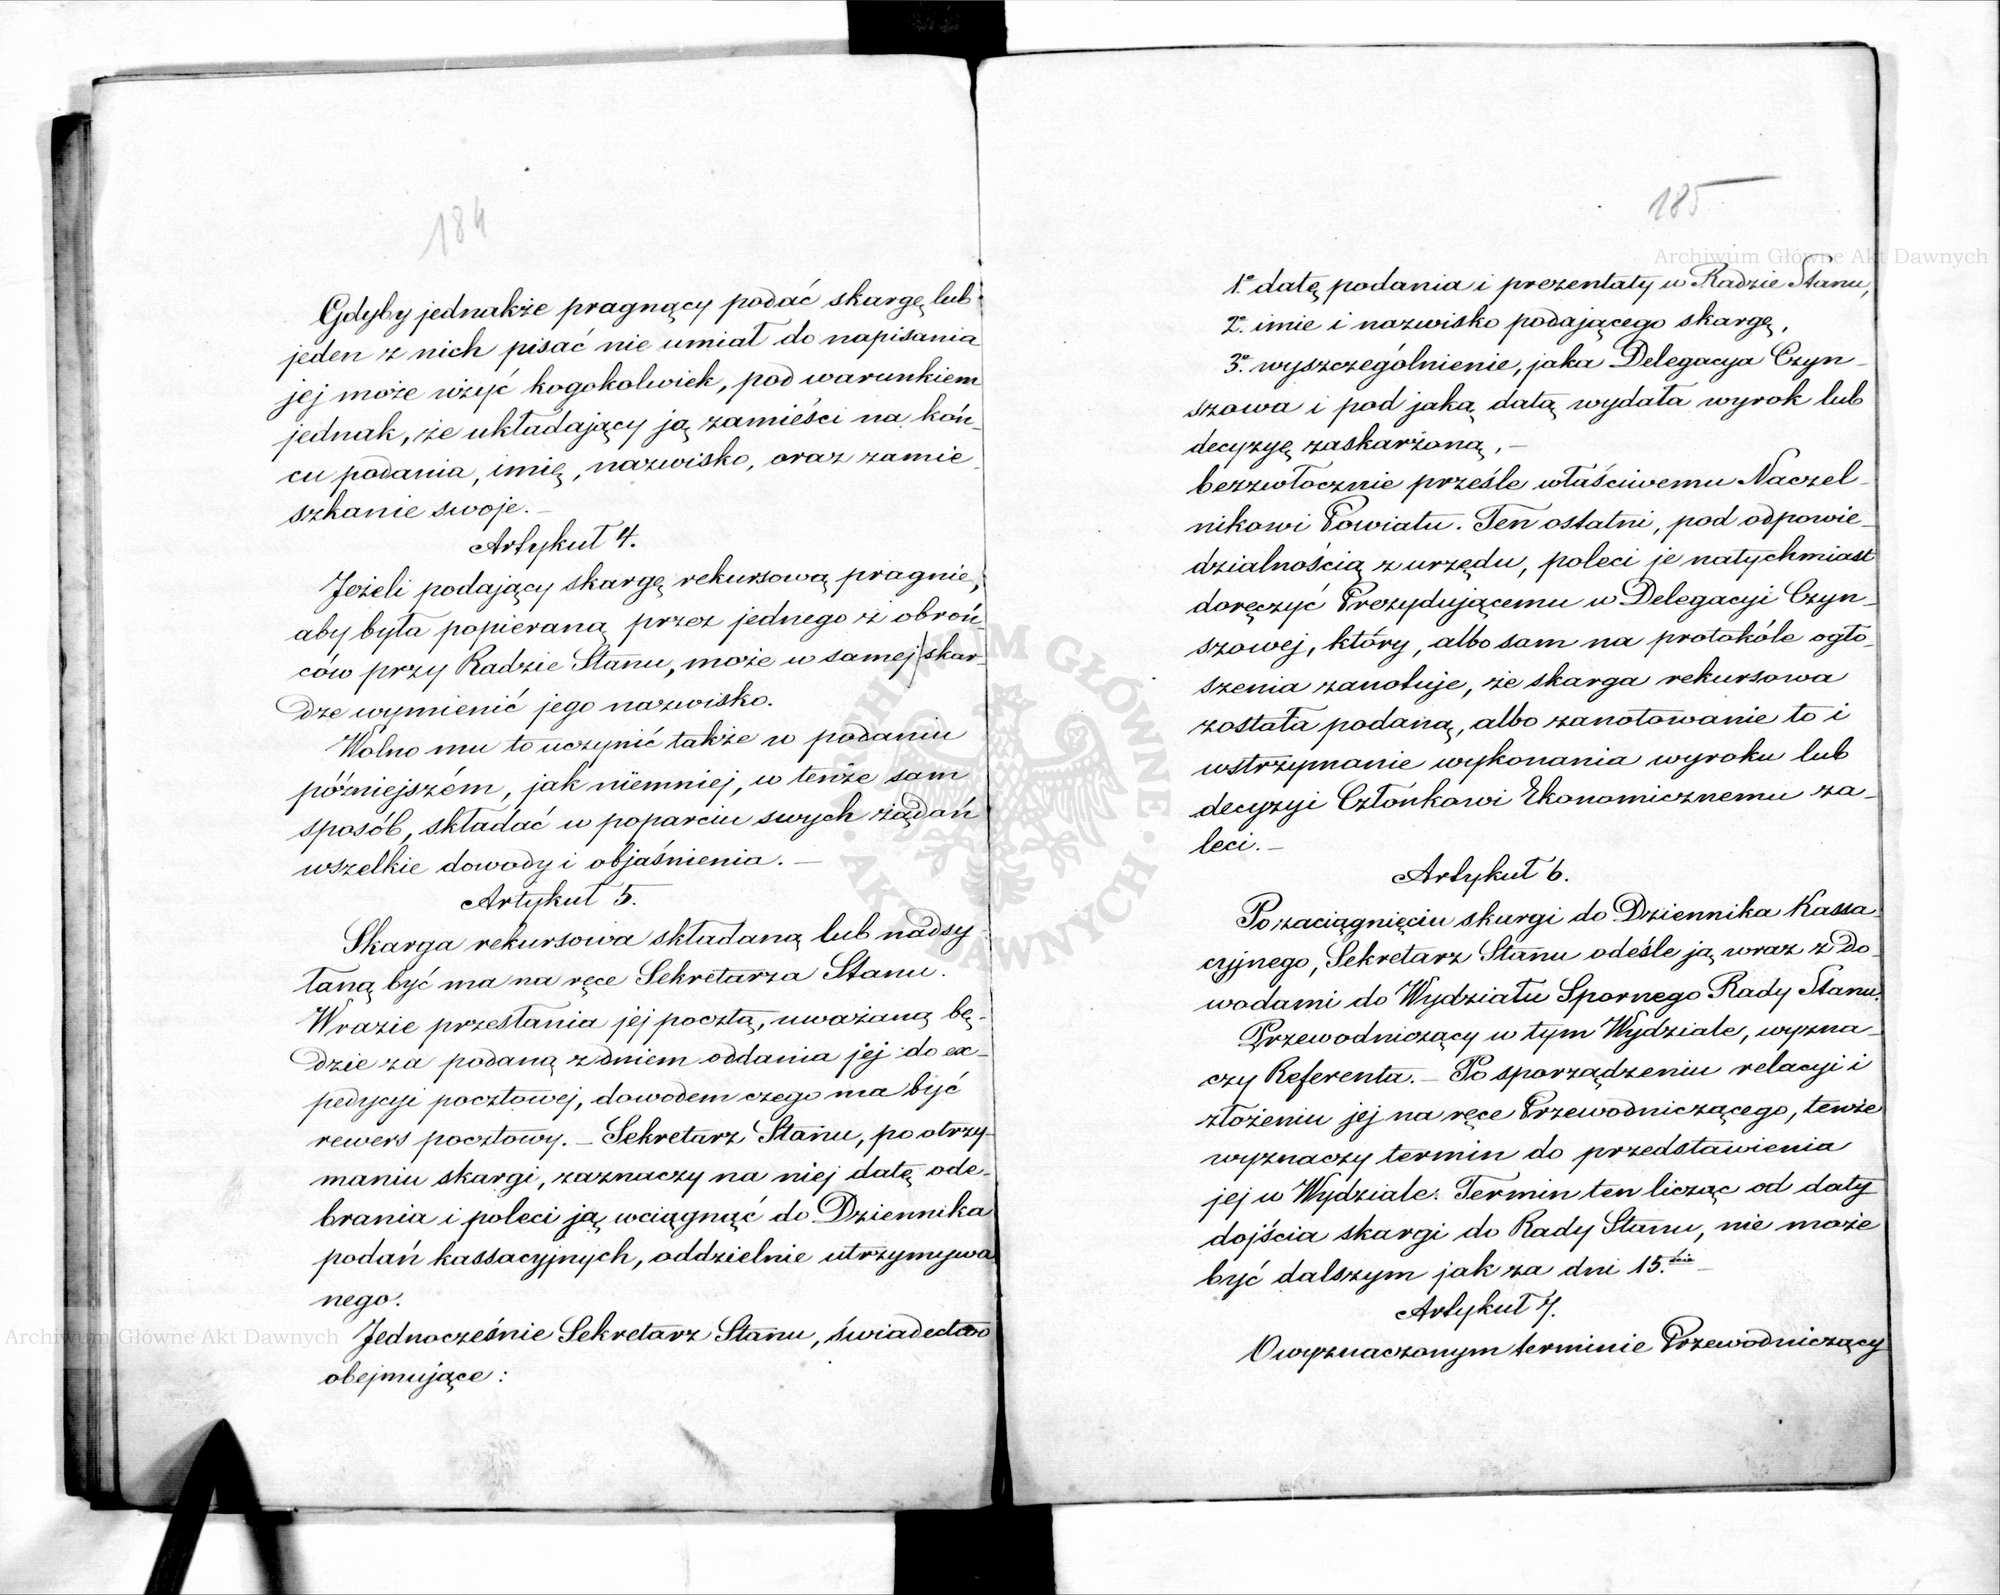 184
Gdyby jednakże pragnący podać skargę lub
jeden z nich pisać nie umiał do napisania
jej może użyć kogokolwiek, pod warunkiem
jednak, że układający ją zamieści na koń-
cu podania, imię, nazwisko, oraz zamie-
szkanie swoje. —
Artykuł 4.
Jeżeli podający skargę rekursową pragnie,
aby była popieraną przez jednego z obroń-
ców przy Radzie Stanu, może w samej skar-
dze wymienić jego nazwisko.
Wolno mu to uczynić także w podaniu
późniejszém, jak niemniej, w tenże sam
sposób, składać w poparciu swych żądań
wszelkie dowody i objaśnienia. —
Artykuł 5.
Skarga rekursowa składaną lub nadsy-
łaną być ma na ręce Sekretarza Stanu.
W razie przesłania jej pocztą, uważaną bę-
dzie za podaną z dniem oddania jej do ex-
pedycyi pocztowej, dowodem czego ma być
rewers pocztowy. — Sekretarz Stanu, po otrzy-
maniu skargi, zaznaczy na niej datę ode-
brania i poleci ją wciągnąć do Dziennika
podań kassacyjnych, oddzielnie utrzymywa
nego.
Jednocześnie Sekretarz Stanu, świadectwo
obejmujące:
185
1º datę podania i prezentaty w Radzie Stanu,
2º imie i nazwisko podającego skargę,
3º wyszczególnienie, jaka Delegacya Czyn-
szowa i pod jaką datą wydała wyrok lub
decyzyę zaskarżoną, —
bezzwłocznie prześle właściwemu Naczel-
nikowi Powiatu. Ten ostatni, pod odpowie-
dzialnością z urzędu, poleci je natychmiast
doręczyć Prezydującemu w Delegacyi Czyn-
szowej, który, albo sam na protokóle ogło-
szenia zanotuje, że skarga rekursowa
została podaną, albo zanotowanie to i
wstrzymanie wykonania wyroku lub
decyzyi Członkowi Ekonomicznemu za-
leci. —
Artykuł 6.
Po zaciągnięciu skargi do Dziennika Kassa-
cyjnego, Sekretarz Stanu odeśle ją wraz z do-
wodami do Wydziału Spornego Rady Stanu.
Przewodniczący w tym Wydziale, wyzna-
czy Referenta. — Po sporządzeniu relacyi i
złożeniu jej na ręce Przewodniczącego, tenże
wyznaczy termin do przedstawienia
jej w Wydziale. Termin ten licząc od daty
dojścia skargi do Rady Stanu, nie może
być dalszym jak za dni 15.
Artykuł 7.
O wyznaczonym terminie Przewodniczący
Archiwum Główne Akt Dawnych
Archiwum Główne Akt Dawnych
ARCHIWUM GŁÓWNE · AKT DAWNYCH ·